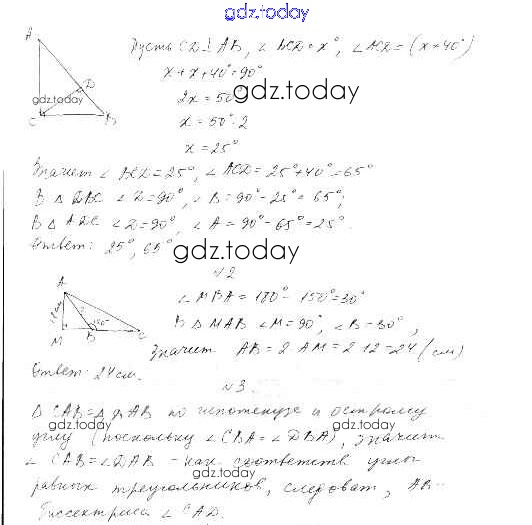 gdz.today
Пусть CD⊥AB, ∠BCD=x°, ∠ACD=(x+40°)
x+x+40°=90°
2x=50°
gdz.today
x=50°:2
x=25°
A
D
gdz.today
C
B
Значит ∠BCD=25°, ∠ACD=25°+40°=65°
В △DBC ∠D=90°, ∠B=90°-25°=65°;
В △ADC ∠D=90°, ∠A=90°-65°=25°.
Ответ: 25°, 65°
gdz.today
№2
A
12см
150°
M B C
∠MBA=180°-150°=30°
В △MAB ∠M=90°, ∠B=30°,
Значит AB=2AM=2·12=24 (см)
Ответ: 24см.
gdz.today
№3.
△CAB=△DAB по гипотенузе и острому
углу (поскольку ∠CBA=∠DBA), значит
∠CAB=∠DAB - как соответств углы
gdz.today
равных треугольников, следоват, AB-
биссектриса ∠CAD.
gdz.today